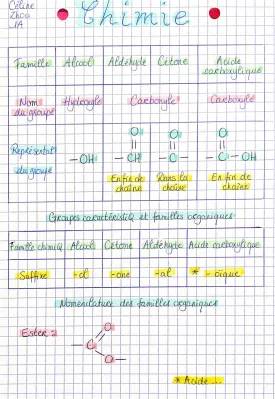 Céline
Zhoa
1A
Chimie
Famille Alcool Aldéhyde Cétone Acide carboxylique
Nom du groupe Hydroxyle Carbonyle Carboxyle
Représentat° du groupe
O O O
—OH —CH —C— —C—OH
En fin de chaîne Dans la chaîne En fin de chaîne
Groupes caractéristiq et familles organiques
Famille chimiq Alcool Cétone Aldéhyde Acide carboxylique
Suffixe -ol -one -al * -oïque
Nomenclature des familles organiques
Ester =
O
—C
O—
* Acide ...